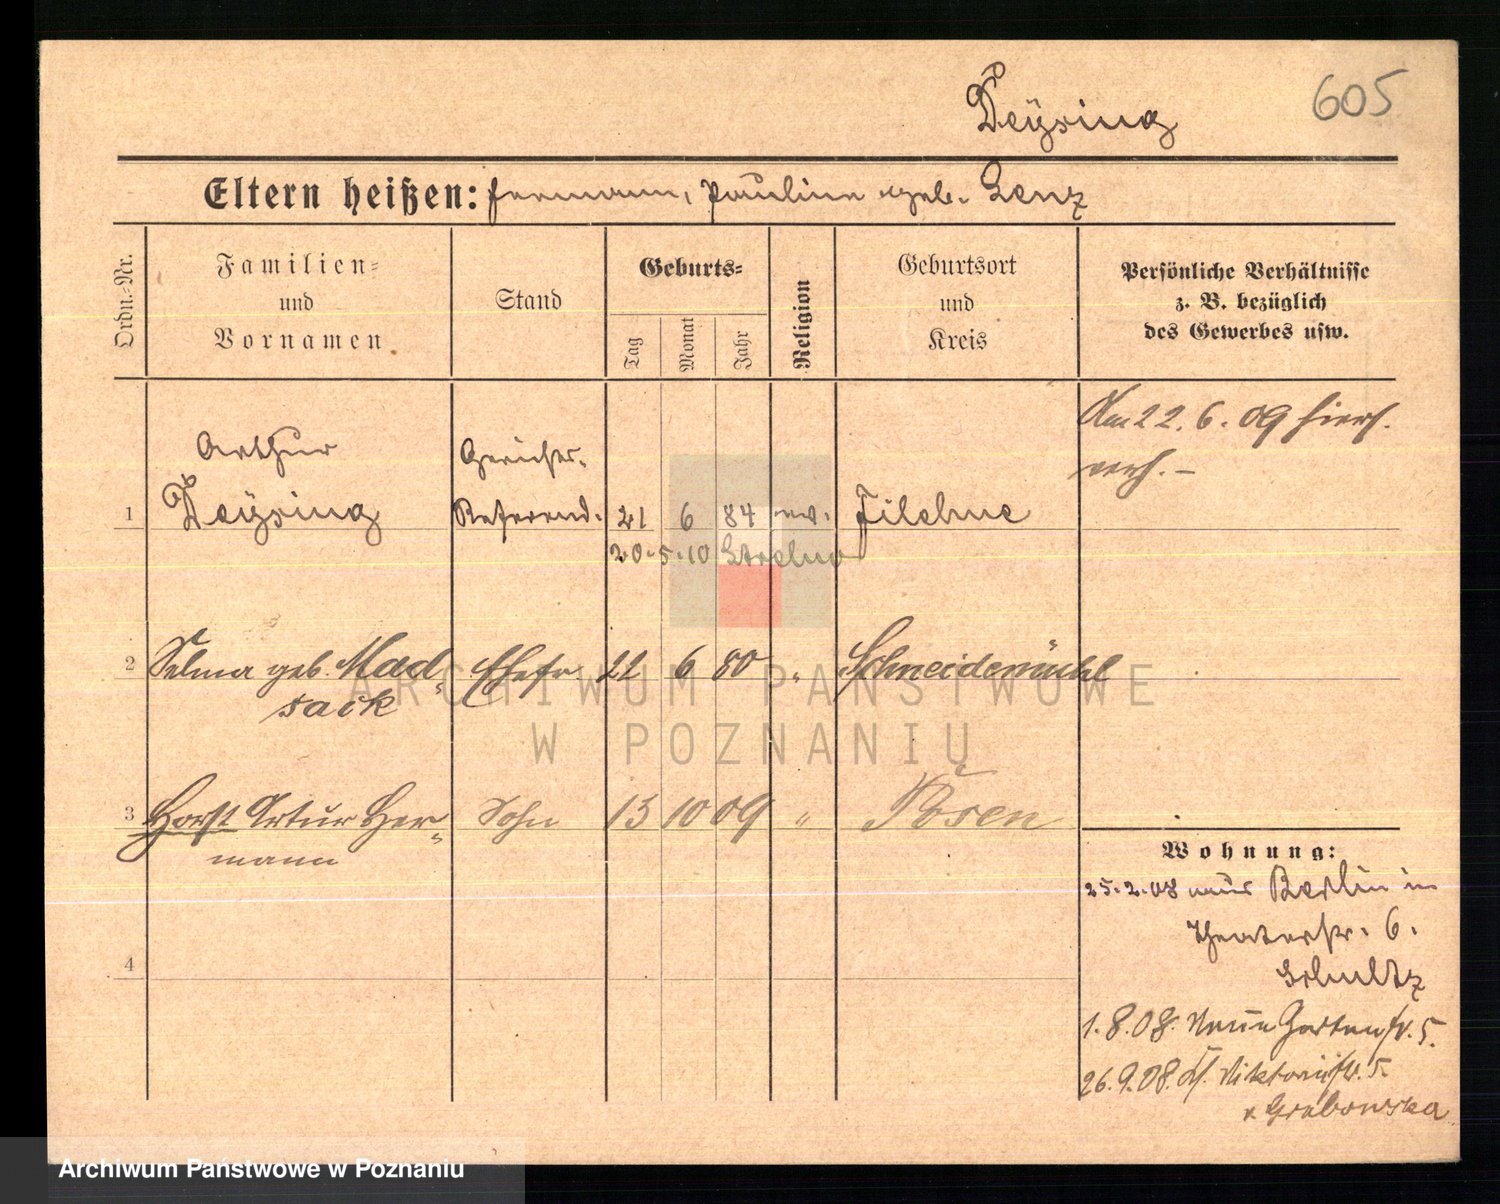 605
Deÿsing
Eltern heißen: Hermann, Pauline geb. Lenz
Ordn.-Nr.
Familien-
und
Vornamen
Stand
Geburts-
Tag
Monat
Jahr
Religion
Geburtsort
und
Kreis
Persönliche Verhältnisse
z. B. bezüglich
des Gewerbes usw.
Am 22.6.09 hiers.
verh. –
Arthur
Gerichts-
1 Deÿsing Referend. 21 6 84 ev. Filehne
20.5.10 Strelno
2 Selma geb. Mad- Ehefr 22 6 80 " Schneidemühl
sack
3 Horst Artur Her- Sohn 13 10 09 " Posen
mann
4
Wohnung:
25.2.08 aus Berlin in
Theaterstr. 6.
Schultz
1.8.08. Neue Gartenstr. 5.
26.9.08. Viktoriastr. 5.
v. Grabowska
ARCHIWUM PAŃSTWOWE
W POZNANIU
Archiwum Państwowe w Poznaniu